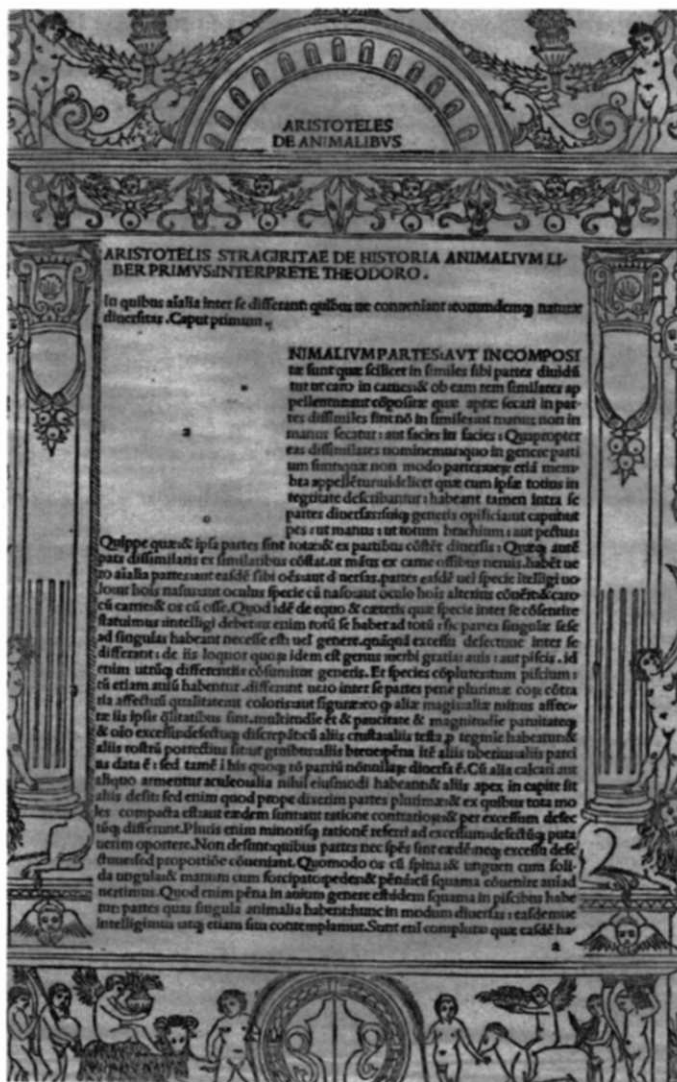 ARISTOTELES
DE ANIMALIBVS
ARISTOTELIS STRAGIRITAE DE HISTORIA ANIMALIVM LI-
BER PRIMVS:INTERPRETE THEODORO.
In quibus aĩalia inter se differant: quibus ue conueniant: eorundemq; naturæ
diuersitas. Caput primum
NIMALIVM PARTES:AVT INCOMPOSI
tæ sunt quæ scilicet in similes sibi partes diuidũ
tur ut caro in carnes:& ob eam rem similares ap
pellentur:aut cõpositæ quæ aptæ secari in par-
tes dissimiles sint nõ in similes:ut manus non in
manus secatur: aut facies in facies: Quapropter
eas dissimilares nominemus:quo in genere parti
um sunt:quæ non modo partes:uerũ etiã mem-
bra appellẽtur:uidelicet quæ cum ipsæ totius in
tegritate describantur: habeant tamen intra se
partes diuersas:suiq; generis opificia:ut caput:ut
pes: ut manus: ut totum brachium: aut pectus:
Quippe quæ:& ipsa partes sint totæ:& ex partibus cõstẽt diuersis: Quæq; autẽ
pars dissimilaris ex similaribus cõstat.ut mãus ex carne ossibus neruis.habẽt ue
ro aĩalia partes:aut easdẽ sibi oẽs:aut diuersas.partes easdẽ uel specie ĩtelligi uo
lo:ut hoĩs nasus:aut oculus specie cũ naso:aut oculo hoĩs alterius cõuẽit:& caro
cũ carne:& os cũ osse.Quod idẽ de equo & cæteris quæ specie inter se cõsentire
statuimus:intelligi debet:ut enim totũ se habet ad totũ: sic partes singulæ sese
ad singulas habeant necesse est: uel genere.quãquã excessu defectuue inter se
differant: de iis loquor quoꝝ idem est genus uerbi gratia: auis: aut piscis. id
enim utrũq; differentiis cõstituitur generis. Et species cõplurẽ tum piscium:
tũ etiam auiũ habentur.differunt uero inter se partes pene plurimæ
ria affectuũ qualitate:ut coloris:aut figuræ:eo q; aliæ magis:aliæ minus affec-
tæ iis ipsis q̃litatibus sint.multitudĩe & paucitate & magnitudĩe paruitateq;
& oĩo excessu:defectuq; discrepãt:cũ aliis crusta:aliis testa.p tegmĩe habeatur:&
aliis rostrũ porrectius sit:ut gruibus:aliis breue:pẽna itẽ aliis uberius:aliis parci
us data ẽ: sed tamẽ ĩ his quoq; ro partiũ nõnullaꝝ diuersa ẽ.Cũ alia calcari aut
aliquo armentur aculeo:alia nihil eiusmodi habeant:& aliis apex in capite sit
aliis desit: sed enim quod prope dixerim partes plurimæ:& ex quibus tota mo
les compacta est:aut eædem sunt:aut ratione contrarioꝝ:& per excessum defec
tũq; differunt.Pluris enim minorisq; rationẽ referri ad excessum:defectũq; puta
uerim oportere.Non desunt:quibus partes nec spẽs sint eædẽ:neq; excessu defe
ctuue:sed proportiõe cõueniant.Quomodo os cũ spina:& unguen cum soli-
da ungula:& manum cum forcipato:pede:& pẽnã:cũ squama cõuenire aniad
uertimus.Quod enim pẽna in auium genere est:idem squama in piscibus habe
tur: partes quas singula animalia habent:hunc in modum diuersas: easdemue
intelligimus utq; etiam situ contemplamur.Sunt enĩ complura: quæ easdẽ ha-
a